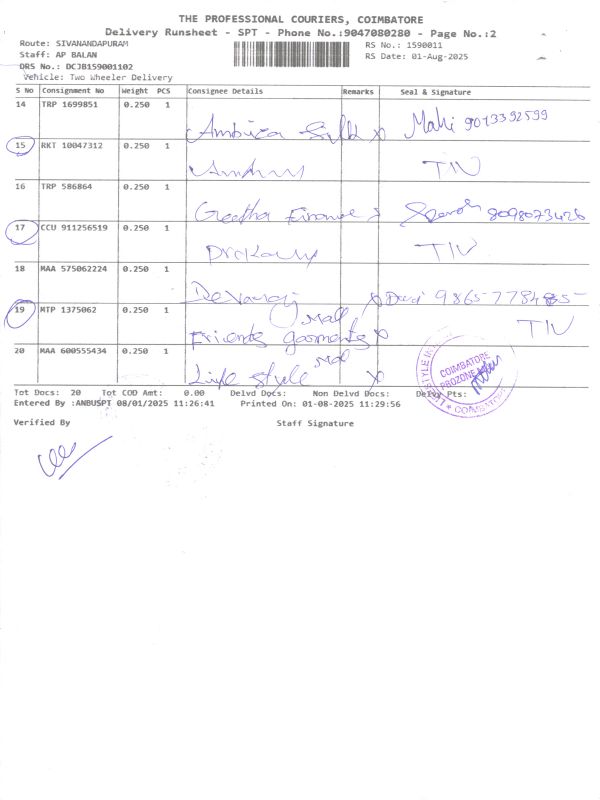 THE PROFESSIONAL COURIERS, COIMBATORE
Delivery Runsheet - SPT - Phone No.:9047080280 - Page No.:2
Route: SIVANANDAPURAM
RS No.: 1590011
Staff: AP BALAN
RS Date: 01-Aug-2025
DRS No.: DCJB159001102
Vehicle: Two Wheeler Delivery
S No Consignment No Weight PCS Consignee Details Remarks Seal & Signature
14 TRP 1699851 0.250 1
Ambica Mahi 9013392599
15 RKT 10047312 0.250 1
TIV
16 TRP 586864 0.250 1
Geetha Finance 8098073426
17 CCU 911256519 0.250 1
TIV
18 MAA 575062224 0.250 1
Devaraj
19 MTP 1375062 0.250 1
Mall TIV
Friends garments
20 MAA 600555434 0.250 1
Mal
Life style
COIMBATORE
PROZONE
COIMBATORE
Tot Docs: 20 Tot COD Amt: 0.00 Delvd Docs: Non Delvd Docs: Delvy Pts:
Entered By :ANBUSPT 08/01/2025 11:26:41 Printed On: 01-08-2025 11:29:56
Verified By Staff Signature